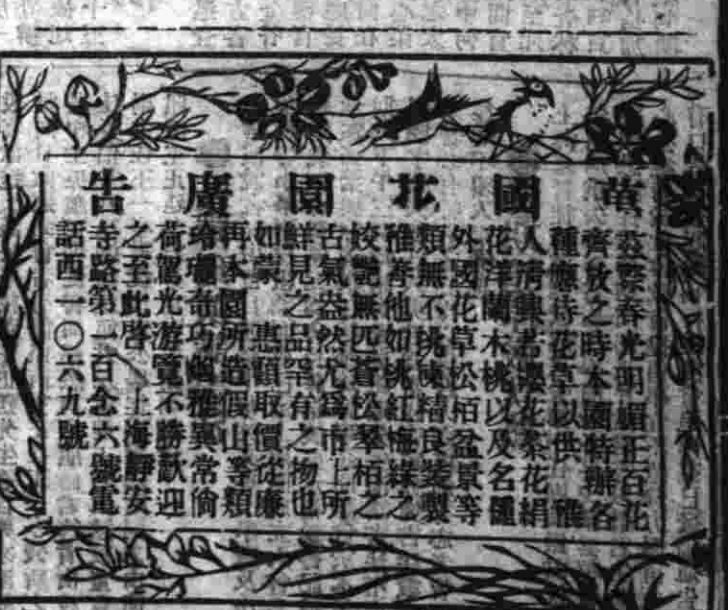 萬國花園廣告
茲際春光明媚正百花
齊放之時本園特辦各
種應時花草以供 雅
人清興若櫻花茶花絹
花洋蘭木桃以及名種
外國花草松栢盆景等
類無不挑楝精良裝製
雅善他如桃紅梅綠之
姣艷無匹蒼松翠栢之
古氣盎然尤爲市上所
鮮見之品罕有之物也
如蒙 惠顧取價從廉
再本園所造假山等類
玲瓏奇巧幽雅異常倘
荷駕光游覽不勝歡迎
之至此啓 上海靜安
寺路第一百念六號電
話西一〇六九號